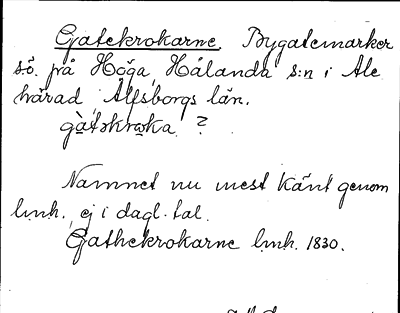 Gatekrokarne. Bygatemarker
s.ö. på Höga, Hålanda s:n i Ale
härad, Älfsborgs län.
gàtəkrơka ?
Namnet nu mest känt genom
lmh., ej i dagl. tal.
Gathekrokarne lmh. 1830.